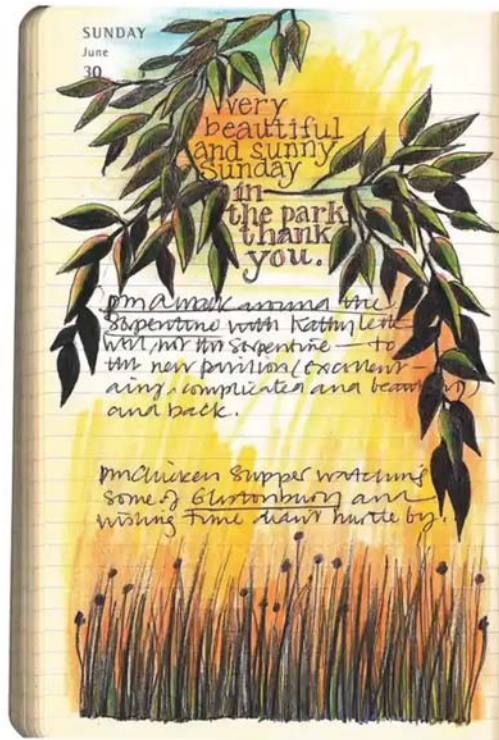 SUNDAY
June
30
very
beautiful
and sunny
Sunday
in
the park
thank
you.
pm A walk around the
Serpentine with Kathy
well, not the Serpentine — to
the new pavilion (excellent —
airy, complicated and beautiful)
and back.
pm Chicken supper watching
some of Glastonbury and
wishing time didn't hurtle by.